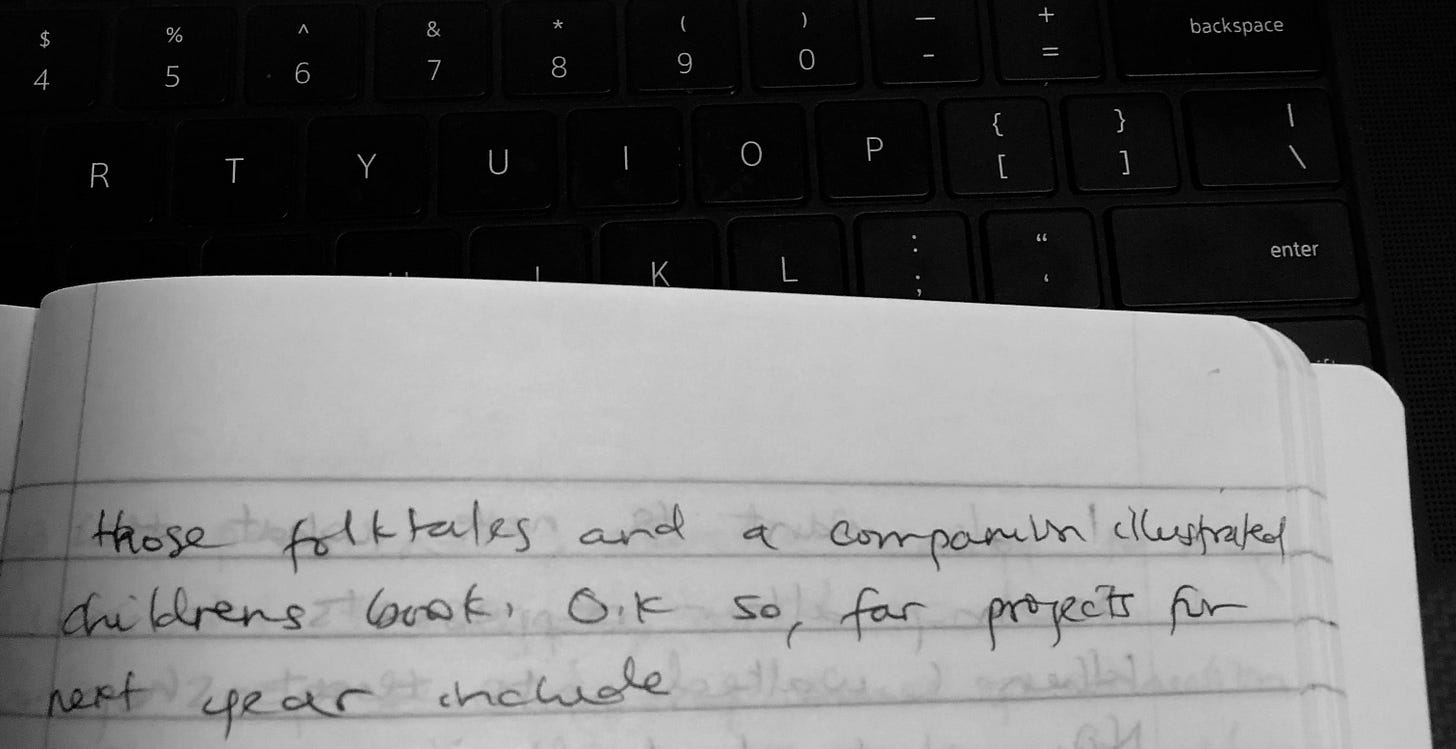 $ % ^ & * ( ) — + backspace
4 5 6 7 8 9 0 - =
R T Y U I O P { } |
[ ] \
K L : “ enter
; ‘
those folktales and a companion illustrated
childrens book. O.K so, far projects for
next year include